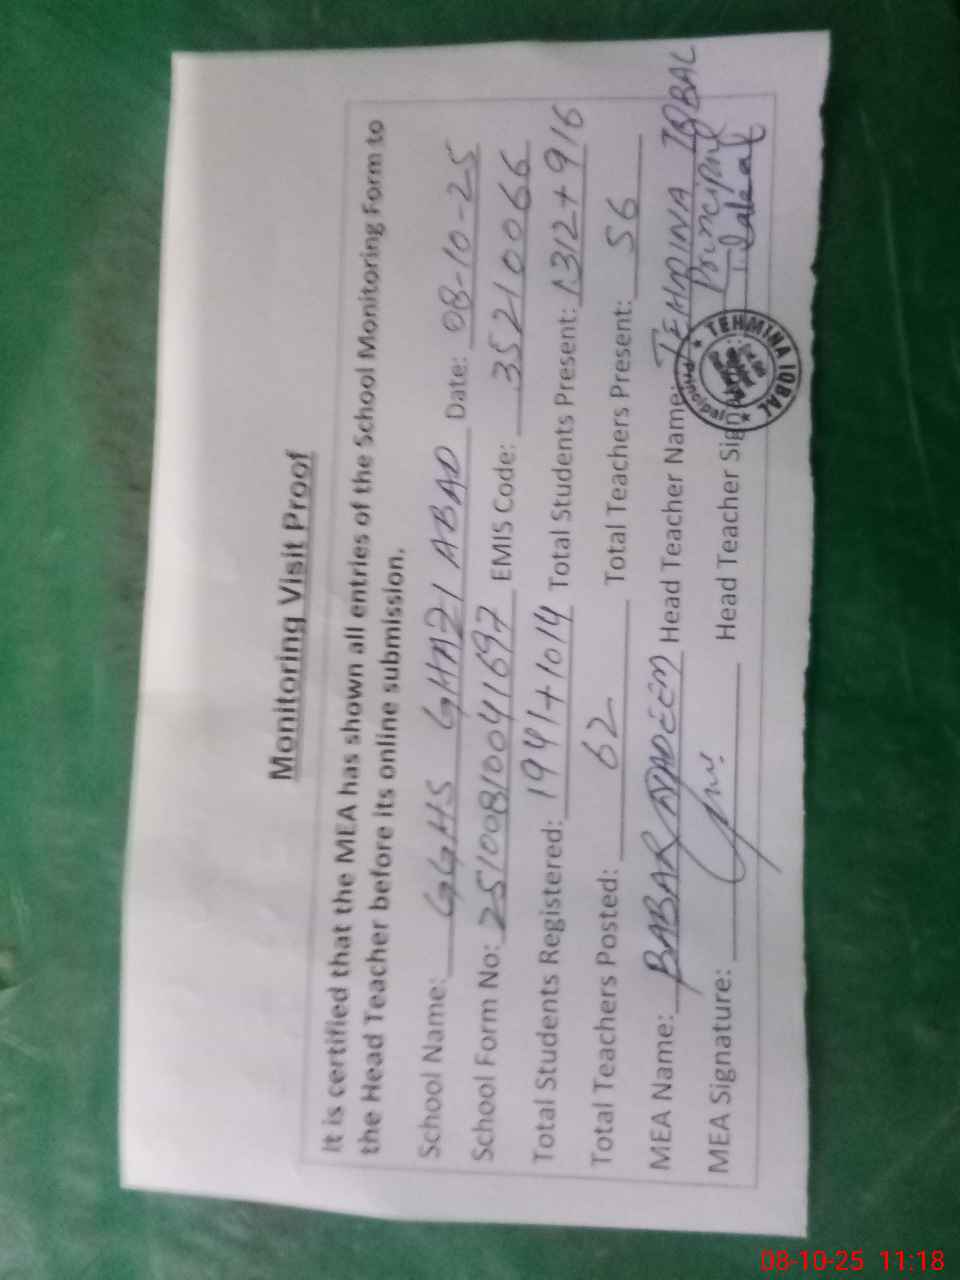 Monitoring Visit Proof
It is certified that the MEA has shown all entries of the School Monitoring Form to
the Head Teacher before its online submission.
School Name: GGHS GHAZI ABAD Date: 08-10-25
School Form No: 25100810041697 EMIS Code: 35210066
Total Students Registered: 1941+1014 Total Students Present: 1312+916
Total Teachers Posted: 62 Total Teachers Present: 56
MEA Name: BABAR NADEEM Head Teacher Name: TEHMINA IQBAL
Principal
MEA Signature: Head Teacher Sign
TEHMINA IQBAL
Principal
08-10-25 11:18